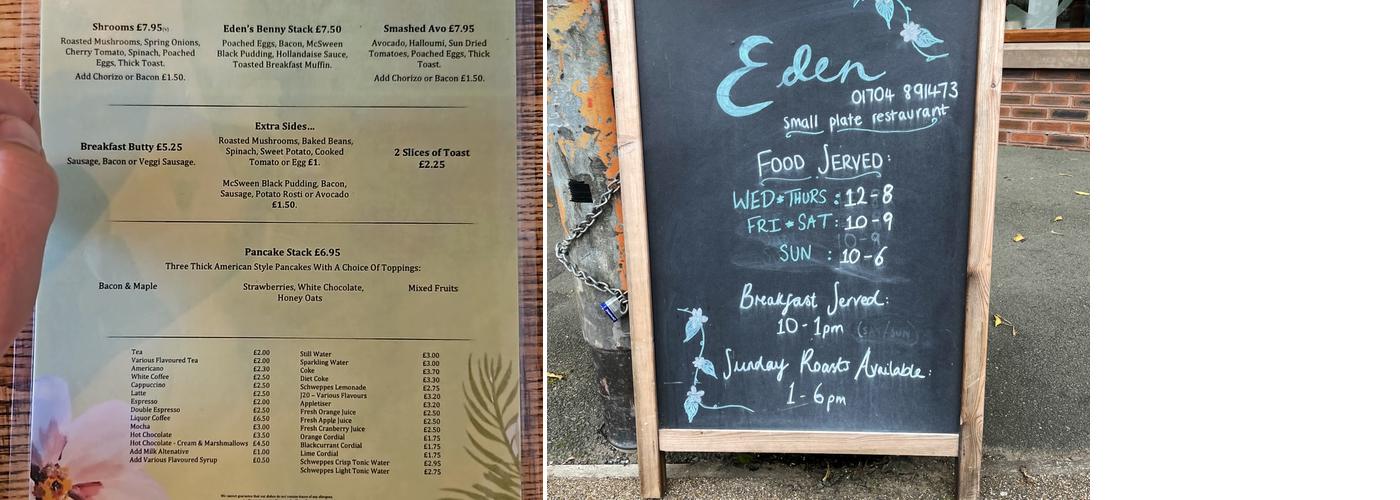 Shrooms £7.95(v)
Roasted Mushrooms, Spring Onions,
Cherry Tomato, Spinach, Poached
Eggs, Thick Toast.
Add Chorizo or Bacon £1.50.
Eden's Benny Stack £7.50
Poached Eggs, Bacon, McSween
Black Pudding, Hollandaise Sauce,
Toasted Breakfast Muffin.
Smashed Avo £7.95
Avocado, Halloumi, Sun Dried
Tomatoes, Poached Eggs, Thick
Toast.
Add Chorizo or Bacon £1.50.
Breakfast Butty £5.25
Sausage, Bacon or Veggi Sausage.
Extra Sides...
Roasted Mushrooms, Baked Beans,
Spinach, Sweet Potato, Cooked
Tomato or Egg £1.
McSween Black Pudding, Bacon,
Sausage, Potato Rosti or Avocado
£1.50.
2 Slices of Toast
£2.25
Pancake Stack £6.95
Three Thick American Style Pancakes With A Choice Of Toppings:
Bacon & Maple
Strawberries, White Chocolate,
Honey Oats
Mixed Fruits
Tea £2.00
Various Flavoured Tea £2.00
Americano £2.30
White Coffee £2.50
Cappuccino £2.50
Latte £2.50
Espresso £2.00
Double Espresso £2.50
Liquor Coffee £6.50
Mocha £3.00
Hot Chocolate £3.50
Hot Chocolate - Cream & Marshmallows £4.50
Add Milk Altenative £1.00
Add Various Flavoured Syrup £0.50
Still Water £3.00
Sparkling Water £3.00
Coke £3.70
Diet Coke £3.30
Schweppes Lemonade £2.75
J20 – Various Flavours £3.20
Appletiser £3.20
Fresh Orange Juice £2.50
Fresh Apple Juice £2.50
Fresh Cranberry Juice £2.50
Orange Cordial £1.75
Blackcurrant Cordial £1.75
Lime Cordial £1.75
Schweppes Crisp Tonic Water £2.95
Schweppes Light Tonic Water £2.75
We cannot guarantee that our dishes do not contain traces of any allergens.
Eden
01704 891473
small plate restaurant
FOOD SERVED:
WED*THURS : 12-8
FRI * SAT : 10-9
10-9
SUN : 10-6
Breakfast Served:
10 - 1pm (SAT/SUN)
Sunday Roasts Available:
1 - 6pm